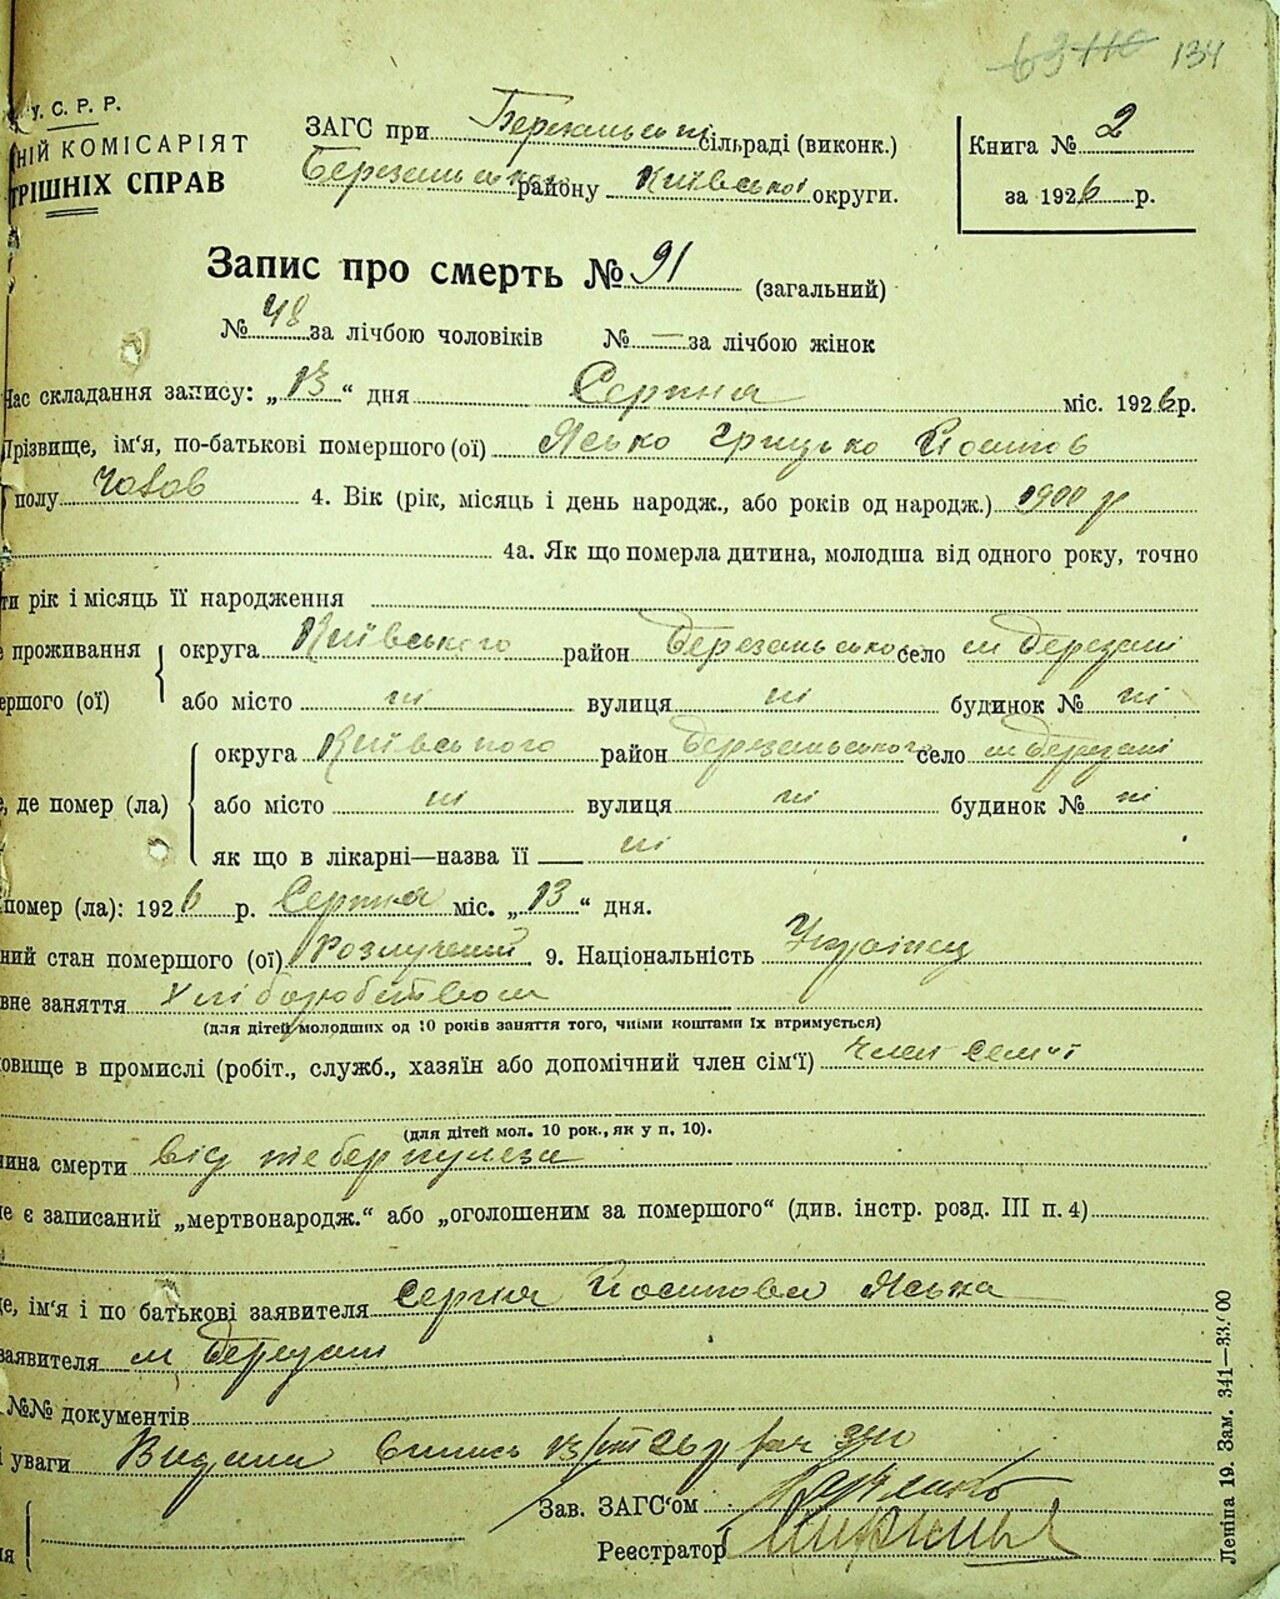 134
У. С. Р. Р.
НІЙ КОМІСАРІЯТ
ТРІШНІХ СПРАВ
ЗАГС при Березанській сільраді (виконк.)
Березанського району Київської округи.
Книга № 2
за 1926 р.
Запис про смерть № 91 (загальний)
№ 48 за лічбою чоловіків № — за лічбою жінок
Час складання запису: „13“ дня Серпня міс. 1926 р.
Прізвище, ім'я, по-батькові помершого (ої) Ясько Грицько Йосипов
полу Чолов 4. Вік (рік, місяць і день народж., або років од народж.) 1900 р
4а. Як що померла дитина, молодша від одного року, точно
ти рік і місяць її народження
проживання округа Київського район Березанського село м Березані
ершого (ої) або місто ні вулиця ні будинок № ні
округа Київського район Березанського село м Березані
, де помер (ла) або місто ні вулиця ні будинок № ні
як що в лікарні—назва її ні
помер (ла): 1926 р. Серпня міс. „13“ дня.
ний стан помершого (ої) Розлучений 9. Національність Українец
вне заняття Хліборобством
(для дітей молодших од 10 років заняття того, чиїми коштами їх втримується)
овище в промислі (робіт., служб., хазяїн або допомічний член сім'ї) член семьї
(для дітей мол. 10 рок., як у п. 10).
ина смерти від теберкулеза
е є записаний „мертвонародж.“ або „оголошеним за помершого“ (див. інстр. розд. III п. 4)
е, ім'я і по батькові заявителя Сергія Йосипова Яська
заявителя м Березані
№№ документів
уваги Видали Випись 13/VIII 26 р
Зав. ЗАГС'ом
Реєстратор
Леніна 19. Зам. 341—33.000